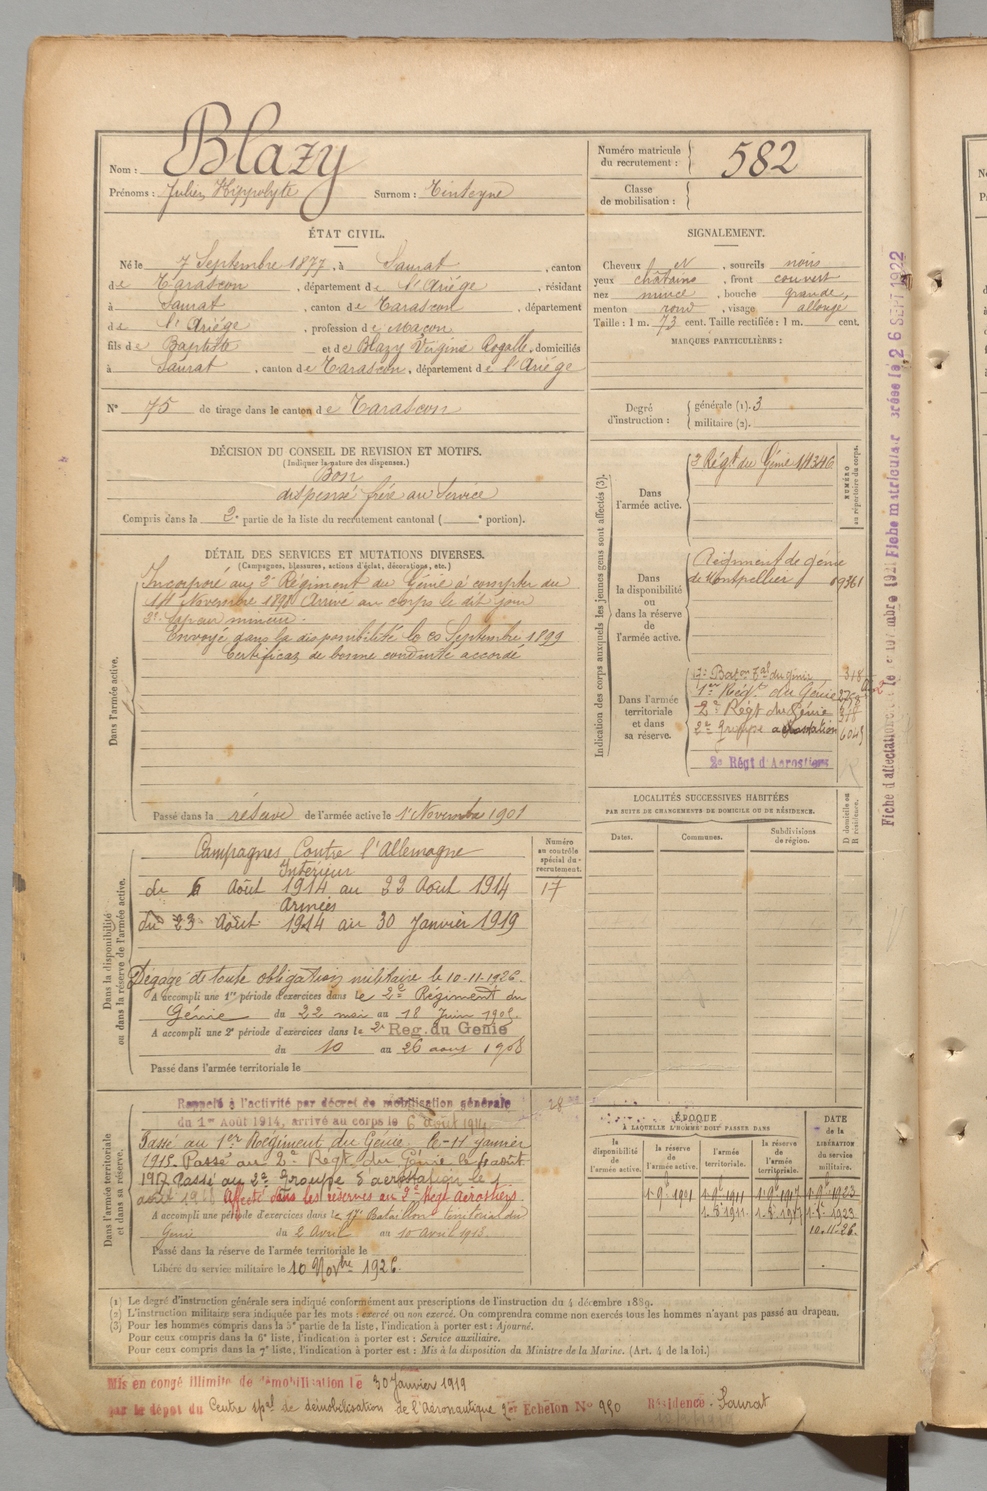 Nom : Blazy
Prénoms : Julien Hippolyte Surnom : Tinteyne
Numéro matricule du recrutement : 582
Classe de mobilisation :
ÉTAT CIVIL.
Né le 7 Septembre 1877, à Saurat, canton
de Tarascon, département de l'Ariége, résidant
à Saurat, canton de Tarascon, département
de l'Ariége, profession de Maçon
fils de Baptiste et de Blazy Virginie Rogalle, domiciliés
à Saurat, canton de Tarascon, département de l'Ariége
N° 75 de tirage dans le canton de Tarascon
SIGNALEMENT.
Cheveux et N, sourcils noirs
yeux châtains, front couvert
nez mince, bouche grande,
menton rond, visage allongé
Taille : 1 m. 73 cent. Taille rectifiée : 1 m. cent.
MARQUES PARTICULIÈRES :
Degré d'instruction : générale (1). 3
militaire (2).
DÉCISION DU CONSEIL DE REVISION ET MOTIFS.
(Indiquer la nature des dispenses.)
Bon
dispensé frère au Service
Compris dans la 2e partie de la liste du recrutement cantonal ( e portion).
DÉTAIL DES SERVICES ET MUTATIONS DIVERSES.
(Campagnes, blessures, actions d'éclat, décorations, etc.)
Dans l'armée active.
Incorporé au 3e Régiment du Génie à compter du
14 Novembre 1898 Arrivé au corps le dit jour
2e Sapeur mineur.
Envoyé dans la disponibilité le 20 Septembre 1899
Certificat de bonne conduite accordé
Passé dans la réserve de l'armée active le 1er Novembre 1901
Indication des corps auxquels les jeunes gens sont affectés (3).
NUMÉRO au répertoire du corps.
Dans l'armée active.
3e Régt du Génie 11346
Dans la disponibilité ou dans la réserve de l'armée active.
Régiment de génie
de Montpellier 09361
Dans l'armée territoriale et dans sa réserve.
17e Baton Tal du génie 318
1er Régt du Génie
2e Régt du Génie 318
2e Groupe aérostation 6045
2e Régt d'Aérostiers
LOCALITÉS SUCCESSIVES HABITÉES
PAR SUITE DE CHANGEMENTS DE DOMICILE OU DE RÉSIDENCE.
Dates. Communes. Subdivisions de région. D domicile ou R résidence.
Dans la disponibilité ou dans la réserve de l'armée active.
Numéro au contrôle spécial du recrutement.
17
Campagnes Contre l'Allemagne
Intérieur
du 6 Août 1914 au 22 Août 1914
Armées
du 23 Août 1914 au 30 Janvier 1919
Dégagé de toute obligation militaire le 10-11-1926.
A accompli une 1re période d'exercices dans le 2e Régiment du
Génie du 22 mai au 18 Juin 1905.
A accompli une 2e période d'exercices dans le 2e Reg. du Génie
du 10 au 26 aout 1908
Passé dans l'armée territoriale le
Dans l'armée territoriale et dans sa réserve.
Rappelé à l'activité par décret de mobilisation générale
du 1er Août 1914, arrivé au corps le 6 août 1914.
28
Passé au 1er Régiment du Génie. le 11 janvier
1915. Passé au 2e Regt du Génie le
1917 Passé au 2e Groupe d'aérostation le 1
août Affecté dans les réserves au 2e Régt Aérostiers
A accompli une période d'exercices dans le 17e Bataillon territorial du
Génie du 2 Avril au 10 avril 1913.
Passé dans la réserve de l'armée territoriale le
Libéré du service militaire le 10 Novbre 1926.
ÉPOQUE
À LAQUELLE L'HOMME DOIT PASSER DANS
la disponibilité de l'armée active. la réserve de l'armée active. l'armée territoriale. la réserve de l'armée territoriale.
DATE de la LIBÉRATION du service militaire.
1.9e 1901 1.9e 1911 1.9e 1917 1.9e 1923
1923
10.11.26.
(1) Le degré d'instruction générale sera indiqué conformément aux prescriptions de l'instruction du 4 décembre 1889.
(2) L'instruction militaire sera indiquée par les mots : exercé ou non exercé. On comprendra comme non exercés tous les hommes n'ayant pas passé au drapeau.
(3) Pour les hommes compris dans la 5e partie de la liste, l'indication à porter est : Ajourné.
Pour ceux compris dans la 6e liste, l'indication à porter est : Service auxiliaire.
Pour ceux compris dans la 7e liste, l'indication à porter est : Mis à la disposition du Ministre de la Marine. (Art. 4 de la loi.)
Mis en congé illimité de démobilisation le 30 Janvier 1919
par le dépôt du Centre spal de démobilisation de l'Aéronautique 2er Echelon N° 950 Résidence. Saurat